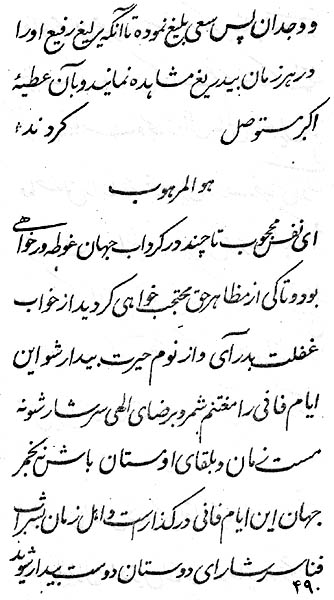 و وجدان پس سعی بلیغ نموده تا آنگه یرلیغ رفیع او را
در هر زمان بیدریغ مشاهده نمائید و بآن عطیهٔ
اکبر متوصل کردند
هو المرهوب
ای نفس محجوب تا چند در کرداب جهان غوطه ور خواهی
بود و تا کی از مظاهر حق محتجب خواهی کردید از خواب
غفلت بدر آی و از نوم حیرت بیدار شو این
ایام فانی را مغتنم شمر و برضای الهی سرشار شو نه
مست زمان و بلقای او مستان باش نه بخمر
جهان این ایام فانی در کذار است و اهل زمان بشراب
فنا سرشار ای دوستان دوست بیدار شوید
۴۹۰